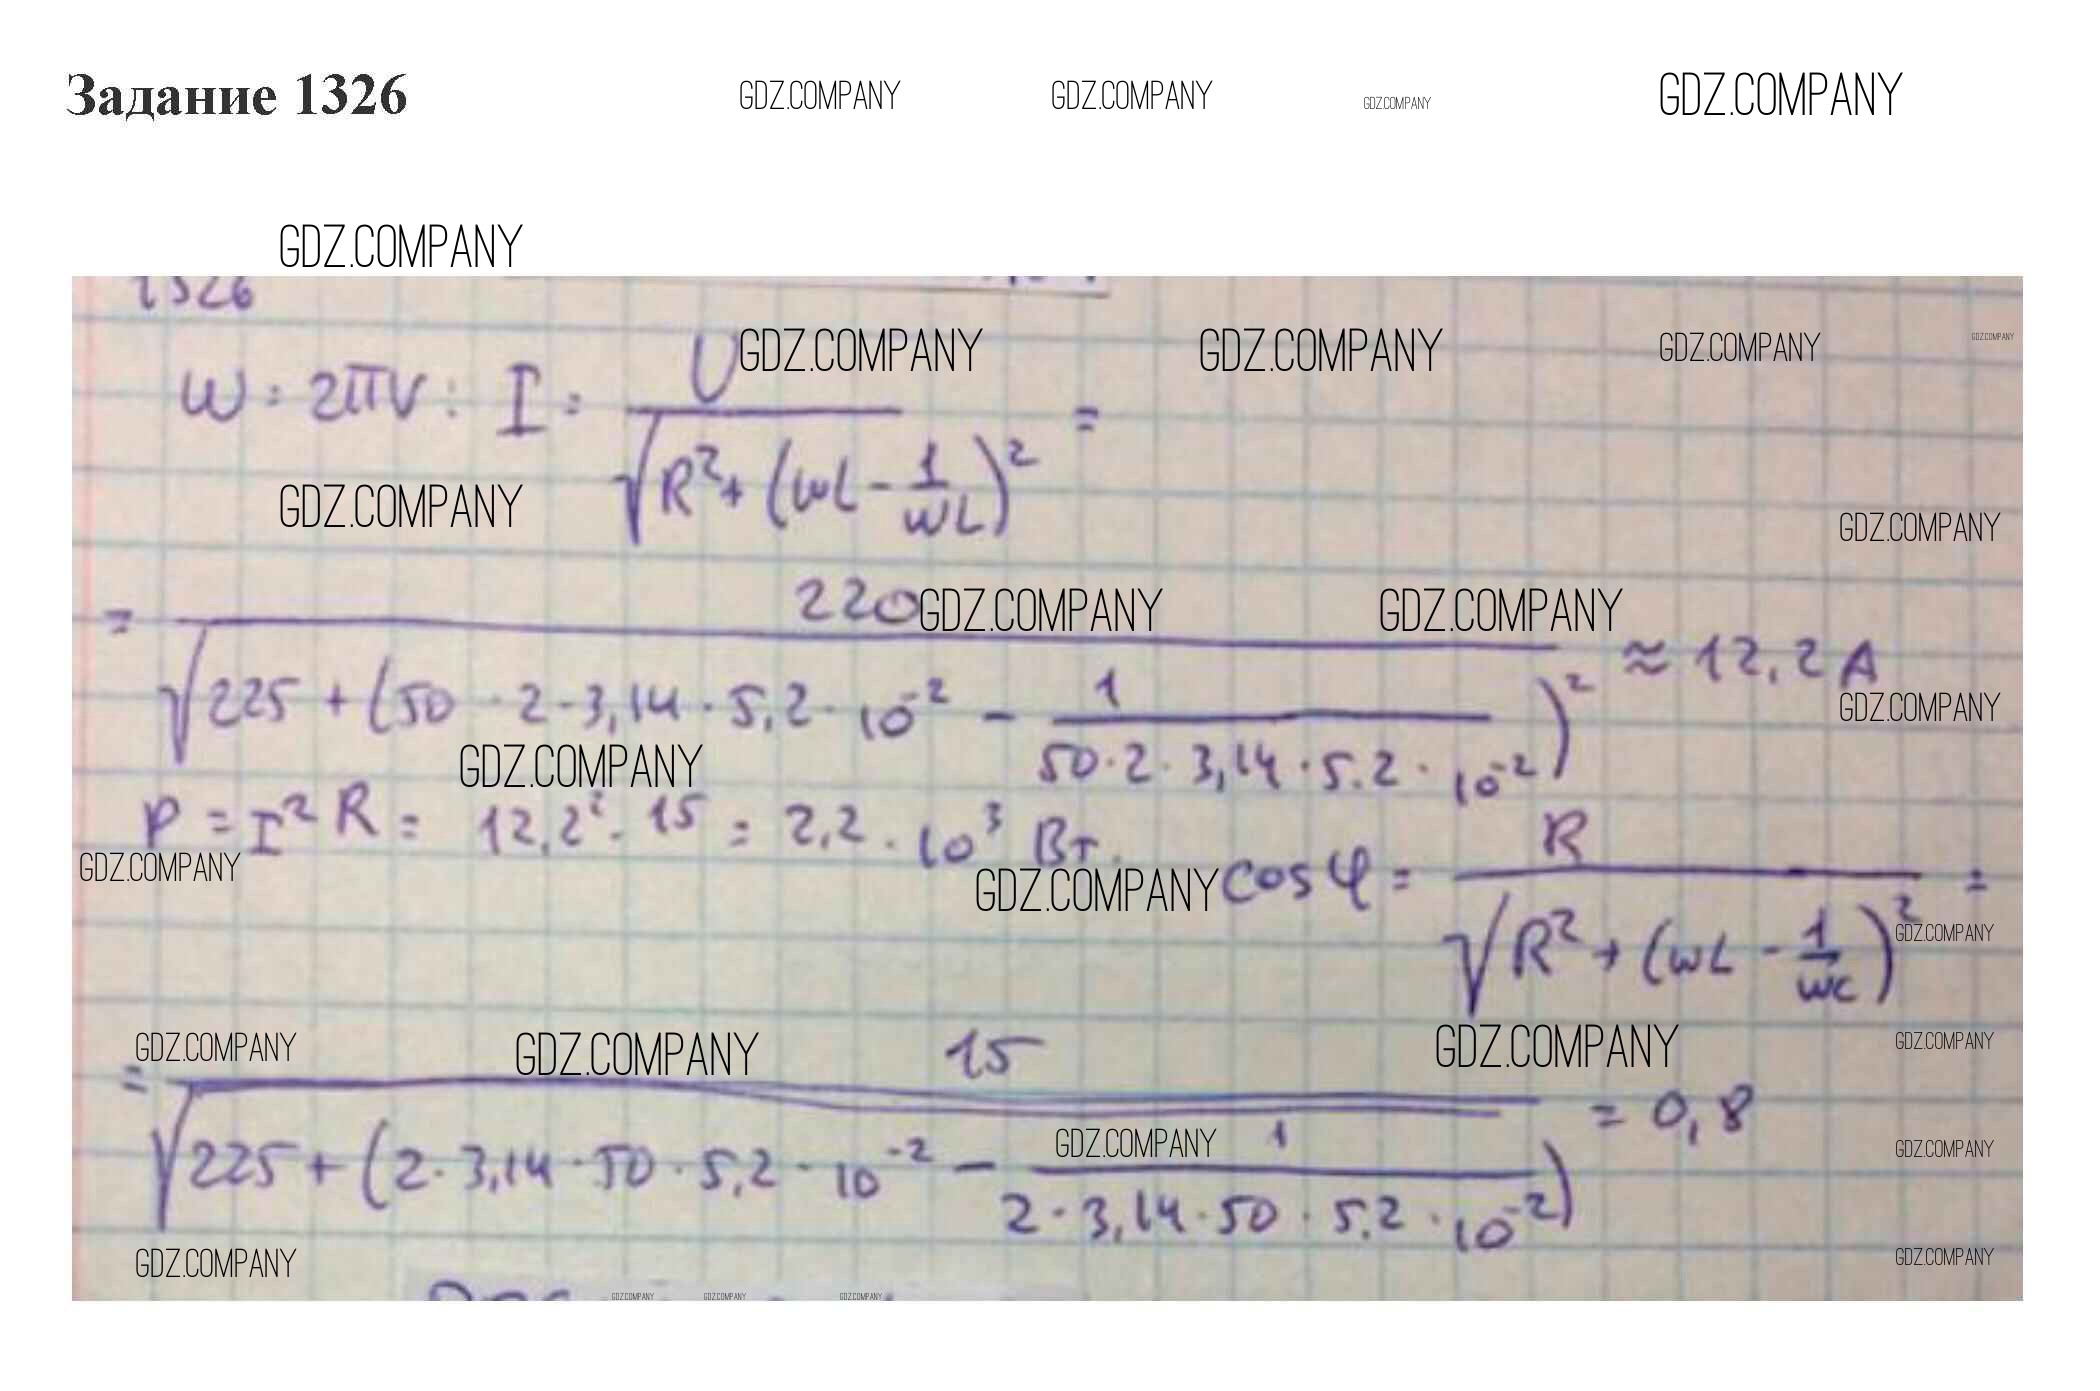 Задание 1326 GDZ.COMPANY GDZ.COMPANY GDZ.COMPANY GDZ.COMPANY
GDZ.COMPANY
1326
W = 2πV : I = U / √(R² + (WL - 1/WL)²) =
GDZ.COMPANY GDZ.COMPANY GDZ.COMPANY GDZ.COMPANY
GDZ.COMPANY GDZ.COMPANY
= 220 / √(225 + (50 · 2 · 3,14 · 5,2 · 10⁻² - 1 / (50 · 2 · 3,14 · 5.2 · 10⁻²))²) ≈ 12,2 A
GDZ.COMPANY GDZ.COMPANY
GDZ.COMPANY
GDZ.COMPANY
P = I² R = 12,2² · 15 = 2,2 · 10³ Вт.
GDZ.COMPANY GDZ.COMPANY
cos φ = R / √(R² + (WL - 1/WC)²) =
GDZ.COMPANY
GDZ.COMPANY GDZ.COMPANY GDZ.COMPANY GDZ.COMPANY
= 15 / √(225 + (2 · 3,14 · 50 · 5,2 · 10⁻² - 1 / (2 · 3,14 · 50 · 5,2 · 10⁻²))) = 0,8
GDZ.COMPANY GDZ.COMPANY
GDZ.COMPANY GDZ.COMPANY
GDZ.COMPANY GDZ.COMPANY GDZ.COMPANY